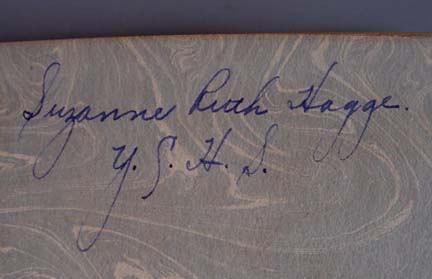 Suzanne Ruth Hagge.
Y. S. H. S.